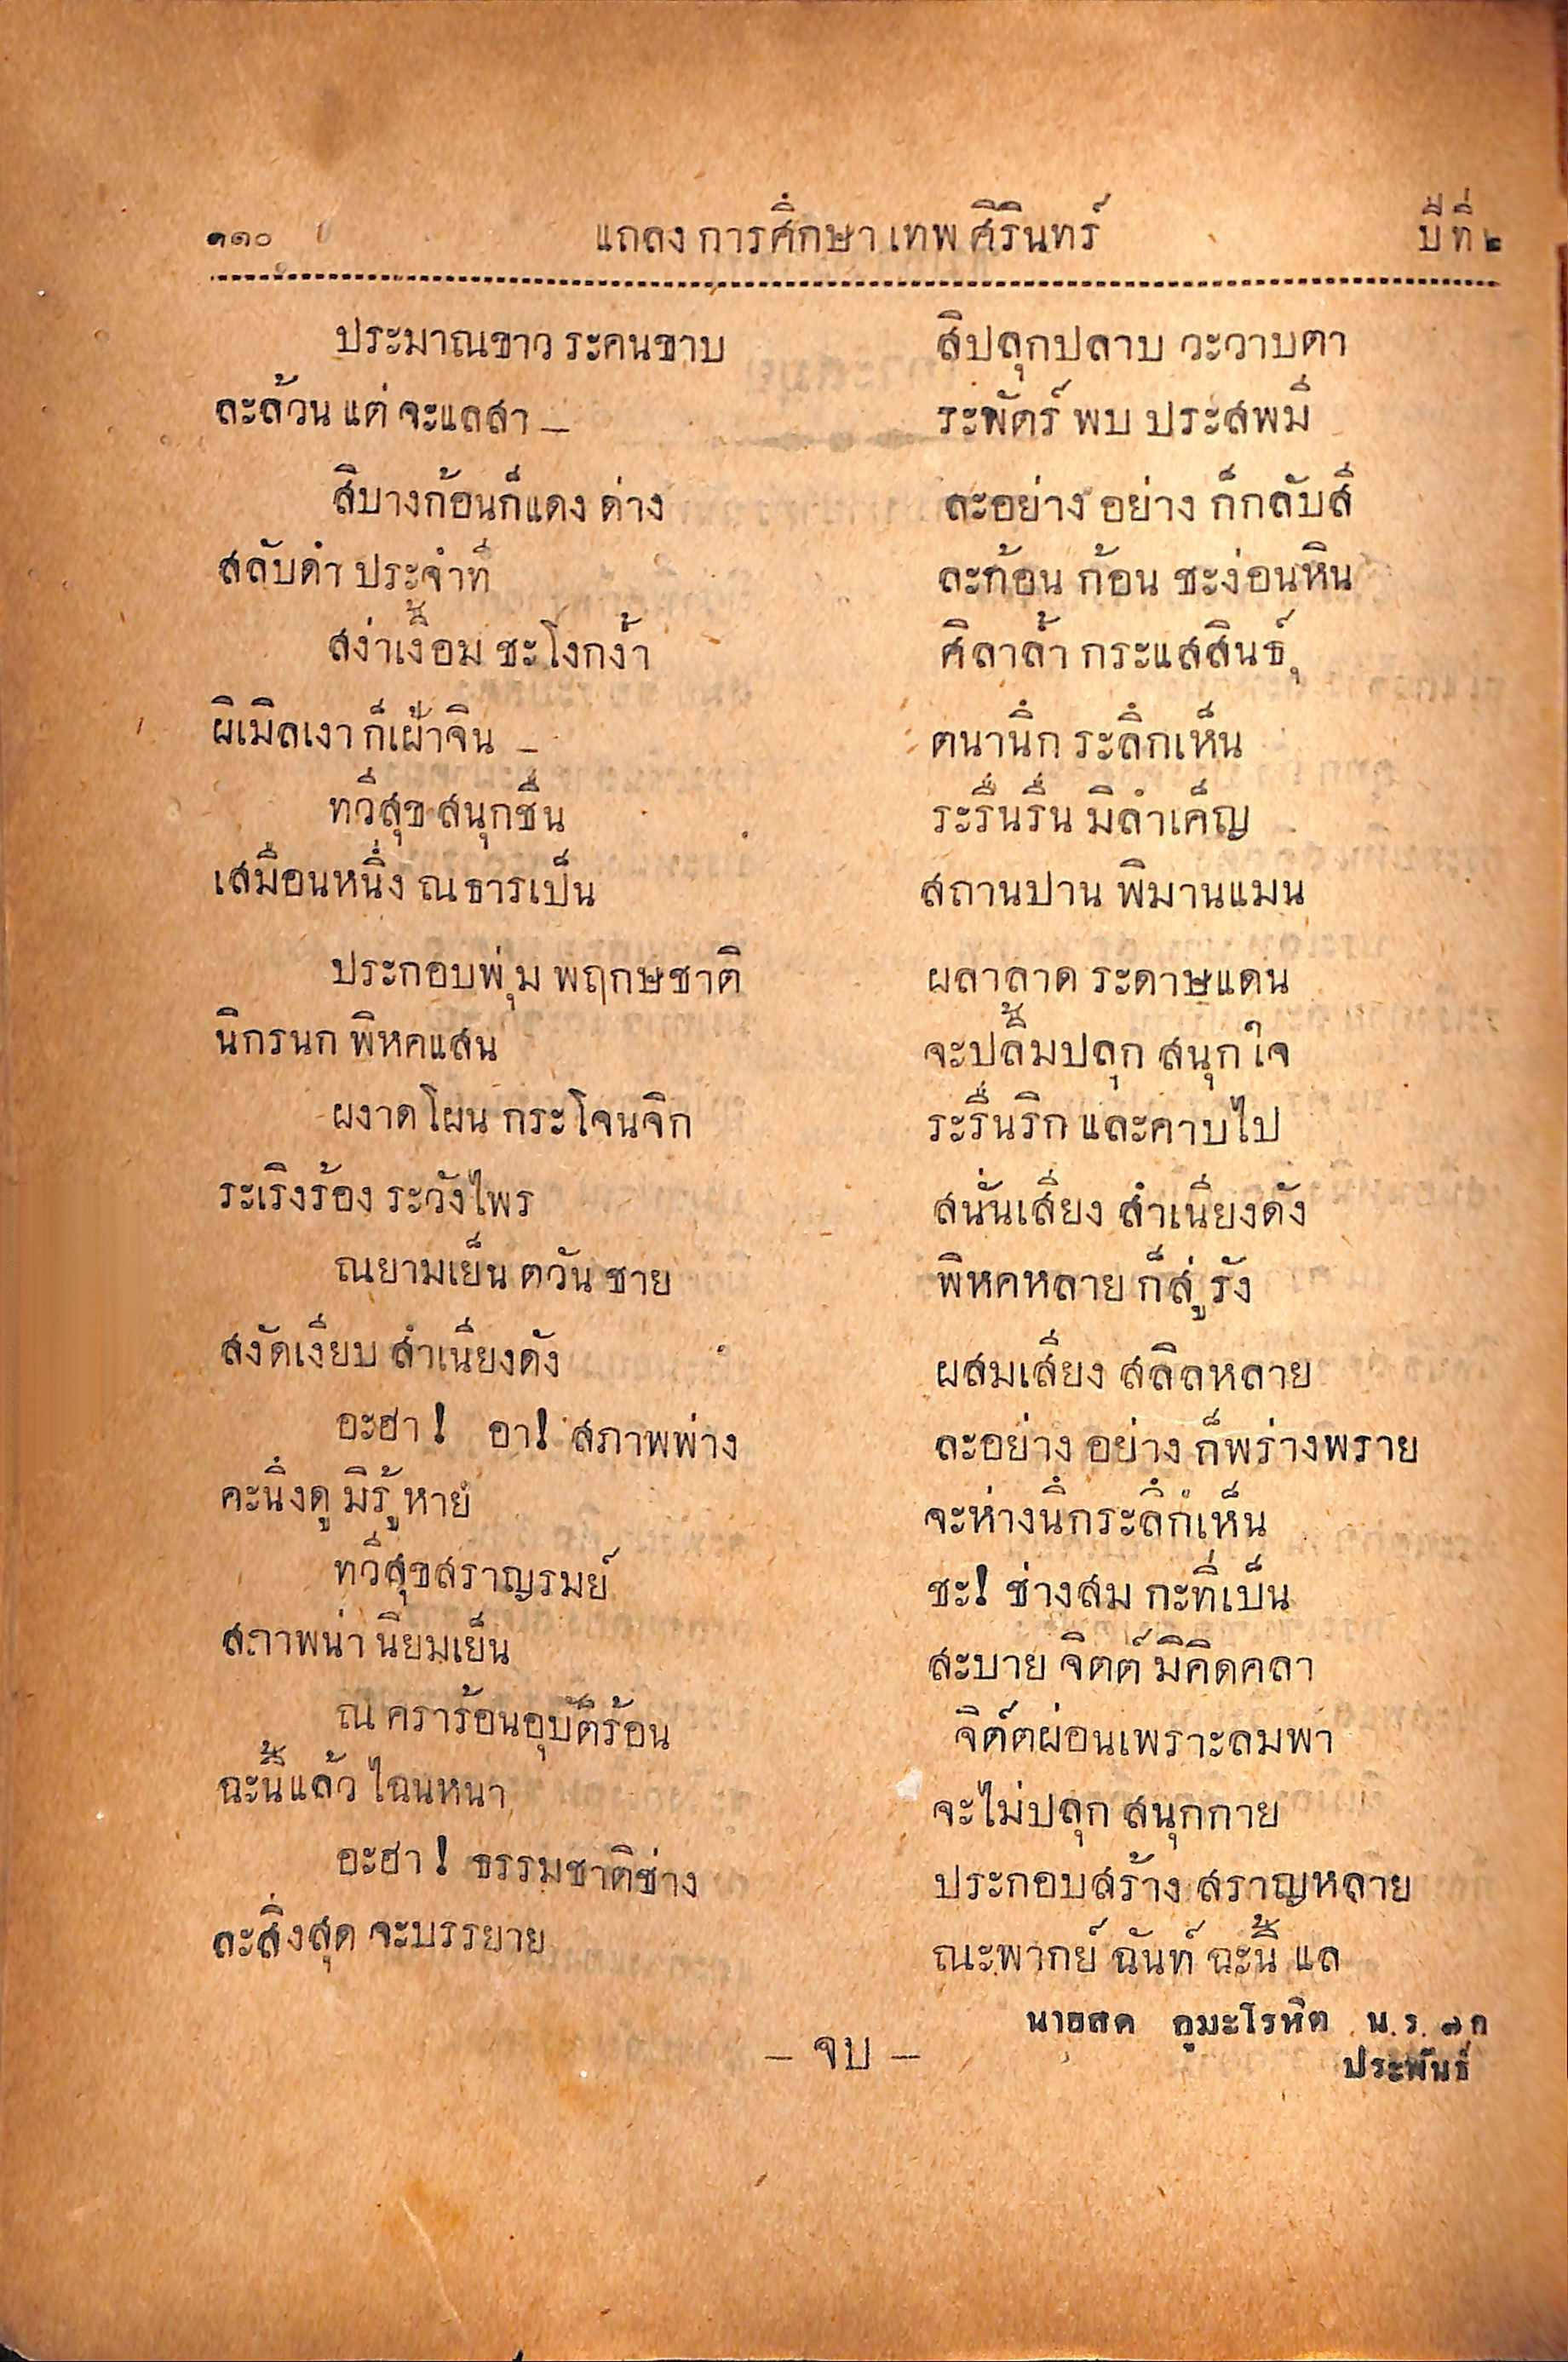 ๑๑๐ แถลงการศึกษาเทพศิรินทร์ ปีที่ ๒
ประมาณขาว ระคนขาบ สีปลุกปลาบ วะวาบตา
ละล้วน แต่ จะแลสา – ระพัดร์ พบ ประสพมี
สีบางก้อนก็แดง ด่าง ละอย่าง อย่าง ก็กลับสี
สลับดำ ประจำที่ ละก้อน ก้อน ชะง่อนหิน
สง่าเงื้อม ชะโงกง้ำ ศิลาล้ำ กระแสสินธุ์
ผิเมิลเงา ก็เฝ้าจิน – ตนานึก ระลึกเห็น
ทวีสุข สนุกชื่น ระรื่นรื่น มิลำเค็ญ
เสมือนหนึ่ง ณ ธารเป็น สถานปาน พิมานแมน
ประกอบพุ่ม พฤกษชาติ ผลาลาด ระดาษแดน
นิกรนก พิหคแสน จะปลื้มปลุก สนุกใจ
ผงาดโผน กระโจนจิก ระรื่นริก และคาบไป
ระเริงร้อง ระวังไพร สนั่นเสียง สำเนียงดัง
ณยามเย็น ตวัน ชาย พิหคหลาย ก็สู่ รัง
สงัดเงียบ สำเนียงดัง ผสมเสียง สลิลหลาย
อะฮา! อา! สภาพพ่าง ละอย่าง อย่าง ก็พร่างพราย
คะนึงดู มิรู้ หาย จะห่างนึกระลึกเห็น
ทวีสุขสราญรมย์ ชะ! ช่างสม กะที่เป็น
สภาพน่า นิยมเย็น สะบาย จิตต์ มิคิดคลา
ณ คราร้อนอุบัติร้อน จิต์ตผ่อนเพราะลมพา
ฉะนี้แล้ว ไฉนหนา จะไม่ปลุก สนุกกาย
อะฮา! ธรรมชาติช่าง ประกอบสร้าง สราญหลาย
ละสิ่งสุด จะบรรยาย ณะพากย์ ฉันท์ ฉะนี้ แล
นายสด ภูมะโรหิต น.ร. ๗ก
– จบ – ประพันธ์